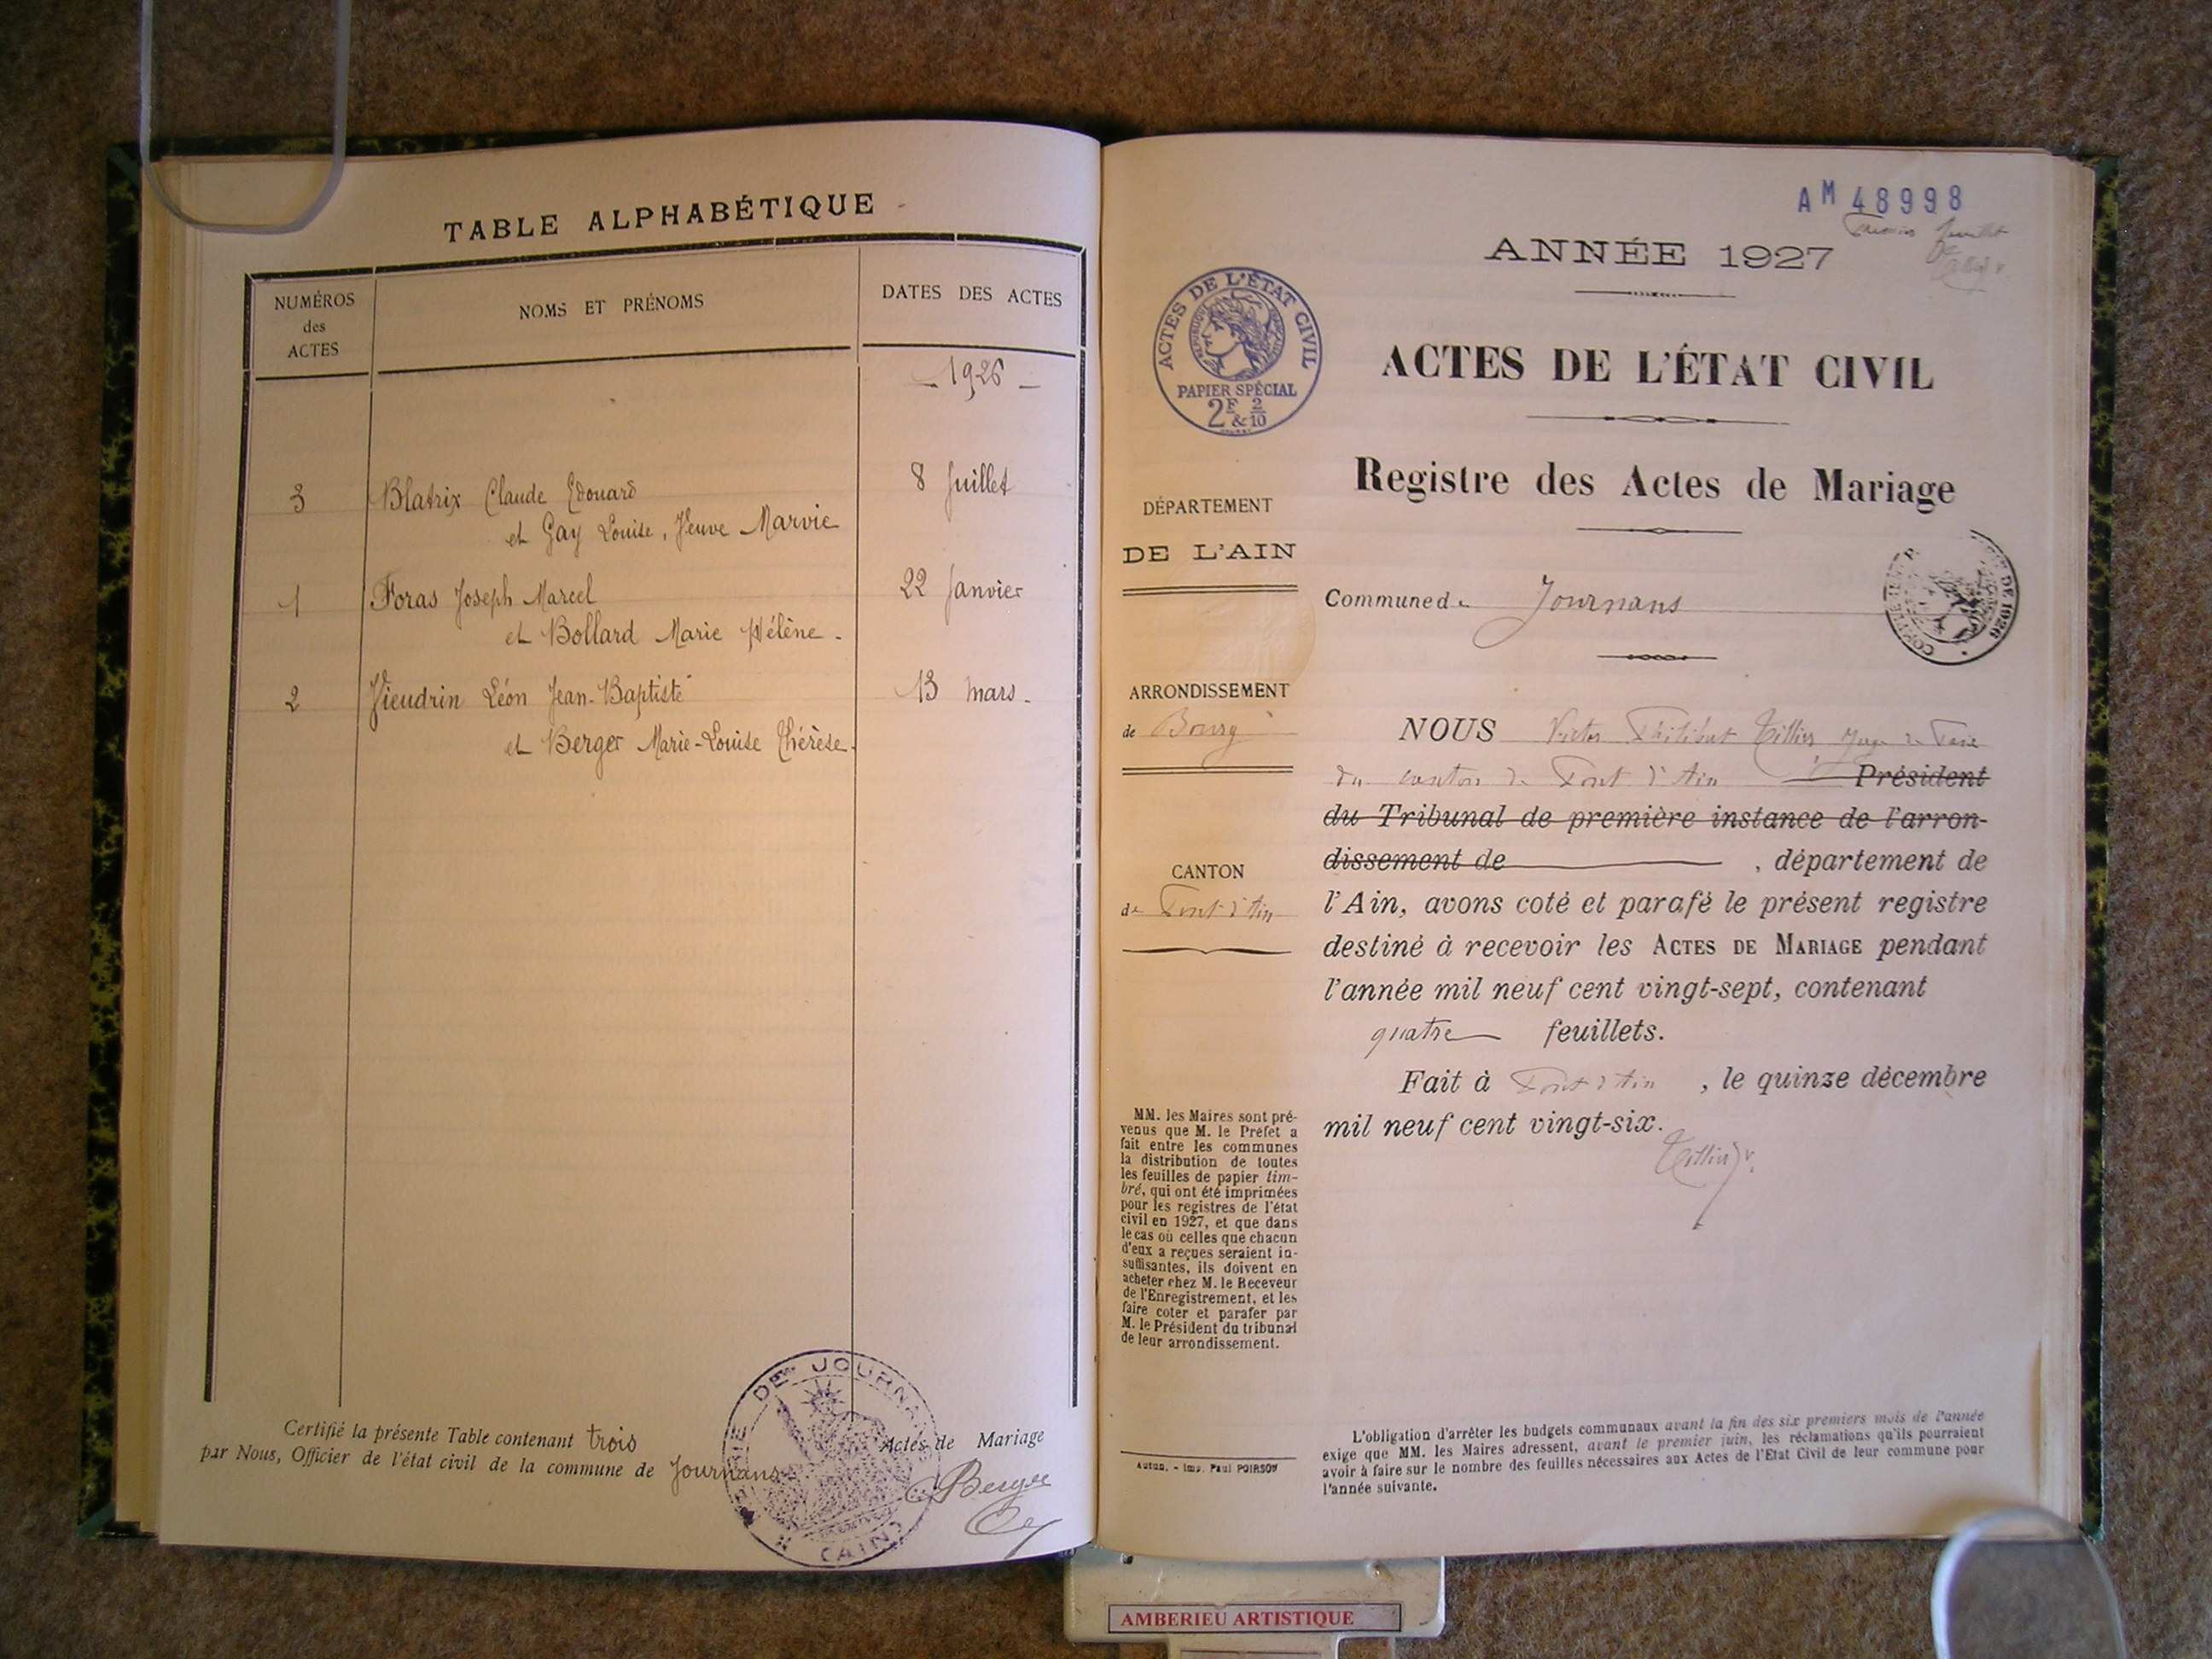 TABLE ALPHABÉTIQUE
NUMÉROS
des
ACTES
NOMS ET PRÉNOMS
DATES DES ACTES
1926
3 Blatrix Claude Edouard 8 Juillet
et Gay Louise, Veuve Marvie
1 Foras Joseph Marcel 22 Janvier
et Bollard Marie Hélène.
2 Vieudrin Léon Jean-Baptiste 13 mars.
et Berger Marie-Louise Thérèse.
Certifié la présente Table contenant trois Actes de Mariage
par Nous, Officier de l'état civil de la commune de Journans
DE JOURNA
(AIN)
Berger
AM 48998
feuillet
ANNÉE 1927
ACTES DE L'ÉTAT CIVIL
RÉPUBLIQUE FRANÇAISE
PAPIER SPÉCIAL
2F & 2/10
ACTES DE L'ÉTAT CIVIL
Registre des Actes de Mariage
DÉPARTEMENT
DE L'AIN
Commune de Journans
DE 1926
ARRONDISSEMENT
de Bourg
CANTON
de Pont d'Ain
NOUS Victor Philibert Tillier Juge de Paix
du canton de Pont d'Ain Président
du Tribunal de première instance de l'arron-
dissement de , département de
l'Ain, avons coté et parafé le présent registre
destiné à recevoir les ACTES DE MARIAGE pendant
l'année mil neuf cent vingt-sept, contenant
quatre feuillets.
Fait à Pont d'Ain , le quinze décembre
mil neuf cent vingt-six.
Tillier
MM. les Maires sont pré-
venus que M. le Préfet a
fait entre les communes
la distribution de toutes
les feuilles de papier tim-
bré, qui ont été imprimées
pour les registres de l'état
civil en 1927, et que dans
le cas où celles que chacun
d'eux a reçues seraient in-
suffisantes, ils doivent en
acheter chez M. le Receveur
de l'Enregistrement, et les
faire coter et parafer par
M. le Président du tribunal
de leur arrondissement.
Autun. - Imp. Paul POIRSON
L'obligation d'arrêter les budgets communaux avant la fin des six premiers mois de l'année
exige que MM. les Maires adressent, avant le premier juin, les réclamations qu'ils pourraient
avoir à faire sur le nombre des feuilles nécessaires aux Actes de l'Etat Civil de leur commune pour
l'année suivante.
AMBERIEU ARTISTIQUE